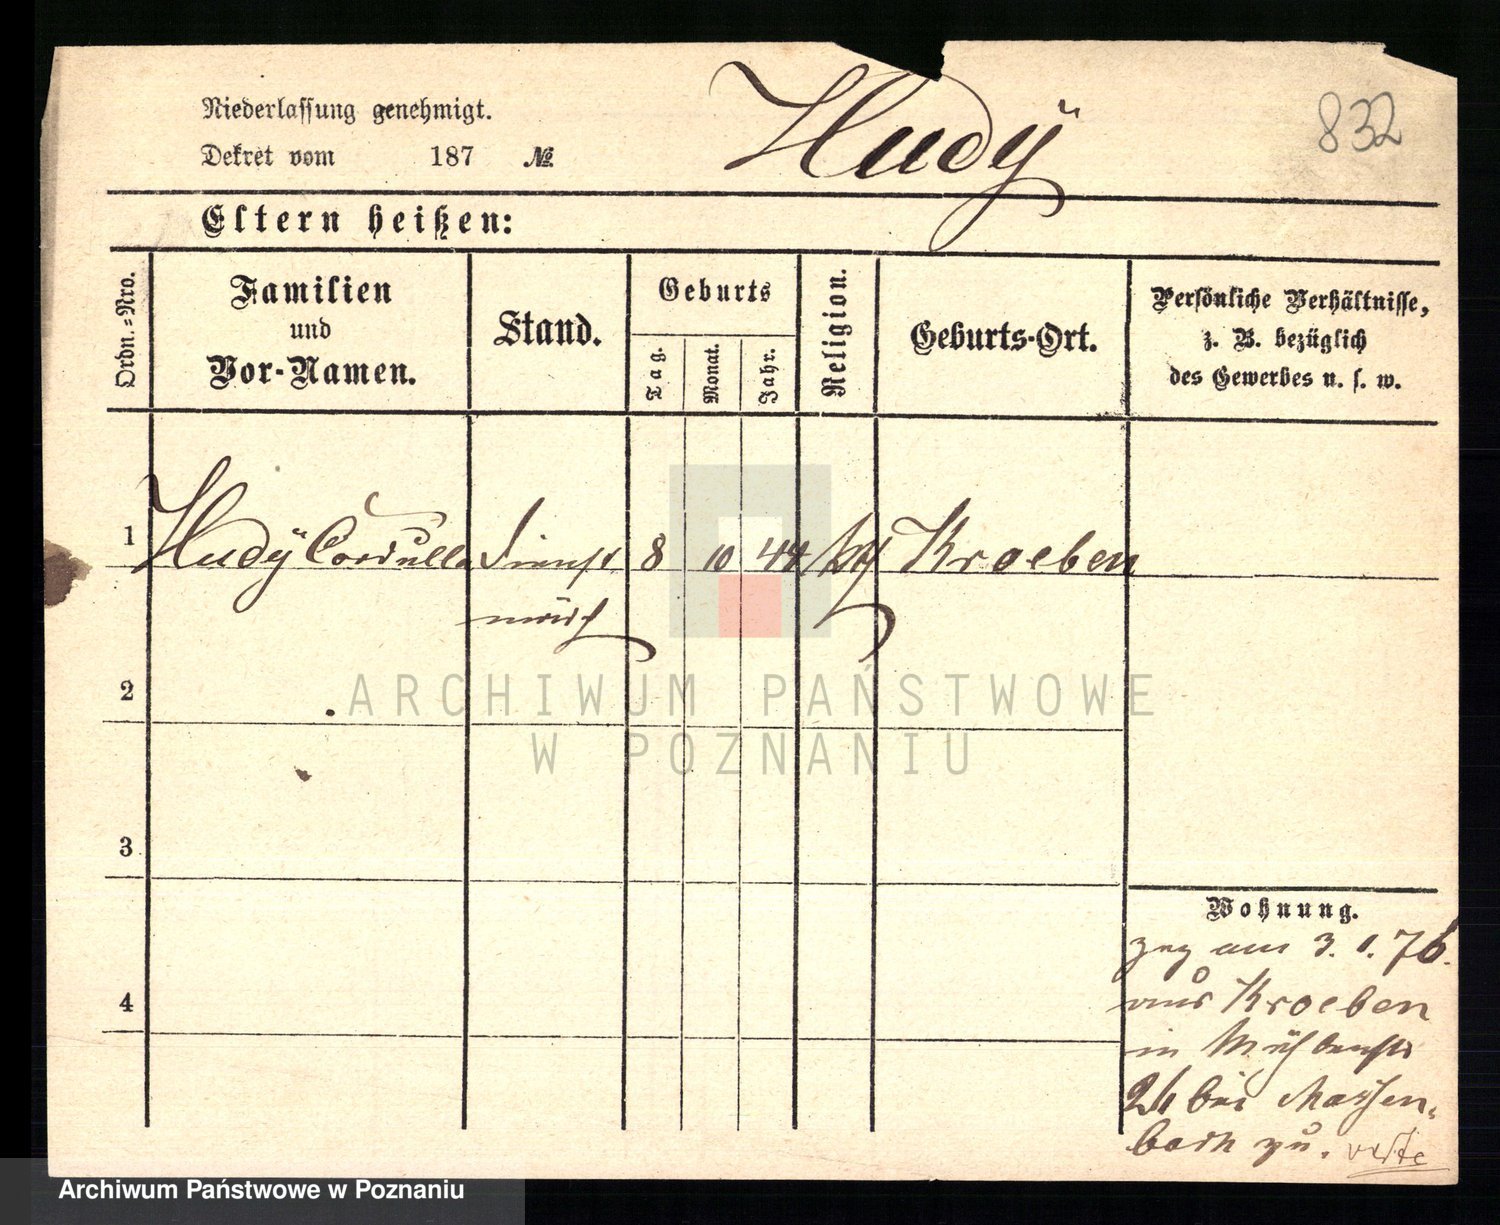 Niederlassung genehmigt.
Dekret vom 187 №
Hudÿ
832
Eltern heißen:
Ordn.=Nro.
Familien
und
Vor-Namen.
Stand.
Geburts
Tag.
Monat.
Jahr.
Religion.
Geburts-Ort.
Persönliche Verhältnisse,
z. B. bezüglich
des Gewerbes u. s. w.
1 Hudÿ Cordulla Dienst 8 10 44 kth Kroeben
mädch
2
3
4
Wohnung.
zog am 3. 1. 76.
aus Kroeben
in Mühlenstr
26 bei Massen-
bach zu. verte
ARCHIWUM PAŃSTWOWE
W POZNANIU
Archiwum Państwowe w Poznaniu